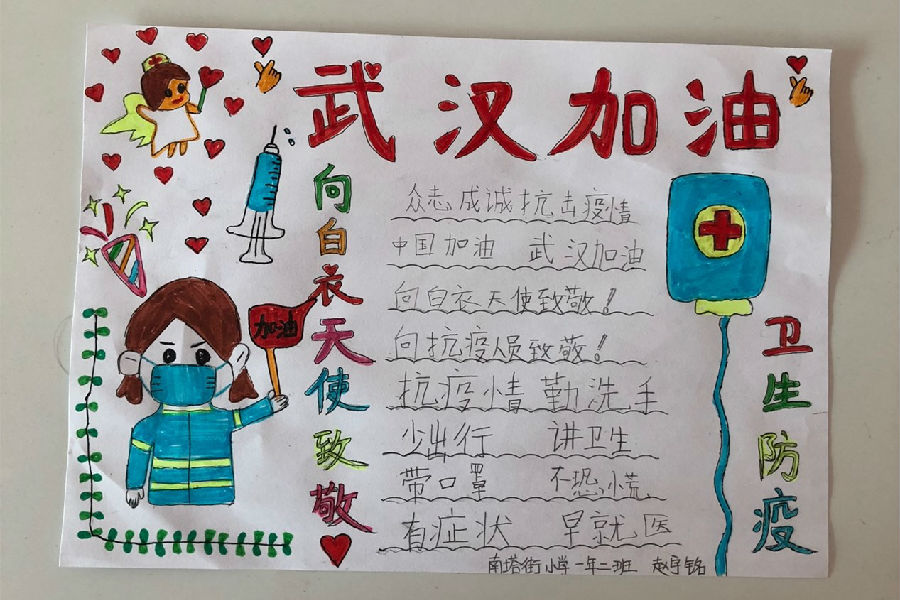 武汉加油
向白衣天使致敬
加油
众志成诚抗击疫情
中国加油 武汉加油
向白衣天使致敬!
向抗疫人员致敬!
抗疫情勤洗手
少出行 讲卫生
带口罩 不恐慌
有症状 早就医
卫生防疫
南塔街小学一年二班 赵铭